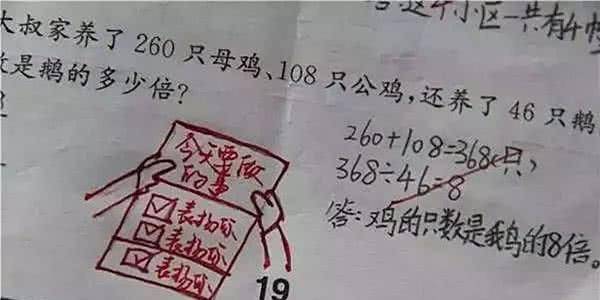 这个小区一共有4幢
大叔家养了 260 只母鸡、108 只公鸡，还养了 46 只鹅
数是鹅的多少倍？
260+108=368(只)
368÷46=8
答：鸡的只数是鹅的8倍。
今天要做
的事
表扬你
表扬你
表扬你
19